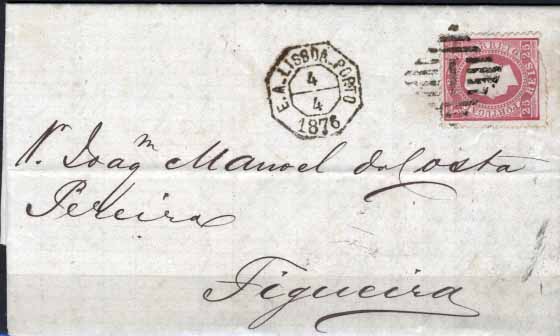 E.A. LISBOA. PORTO
4
4
1876
CORREIO
25 REIS 25
PORTUGAL
Sr. Joaqm Manoel da Costa
Pereira
Figueira